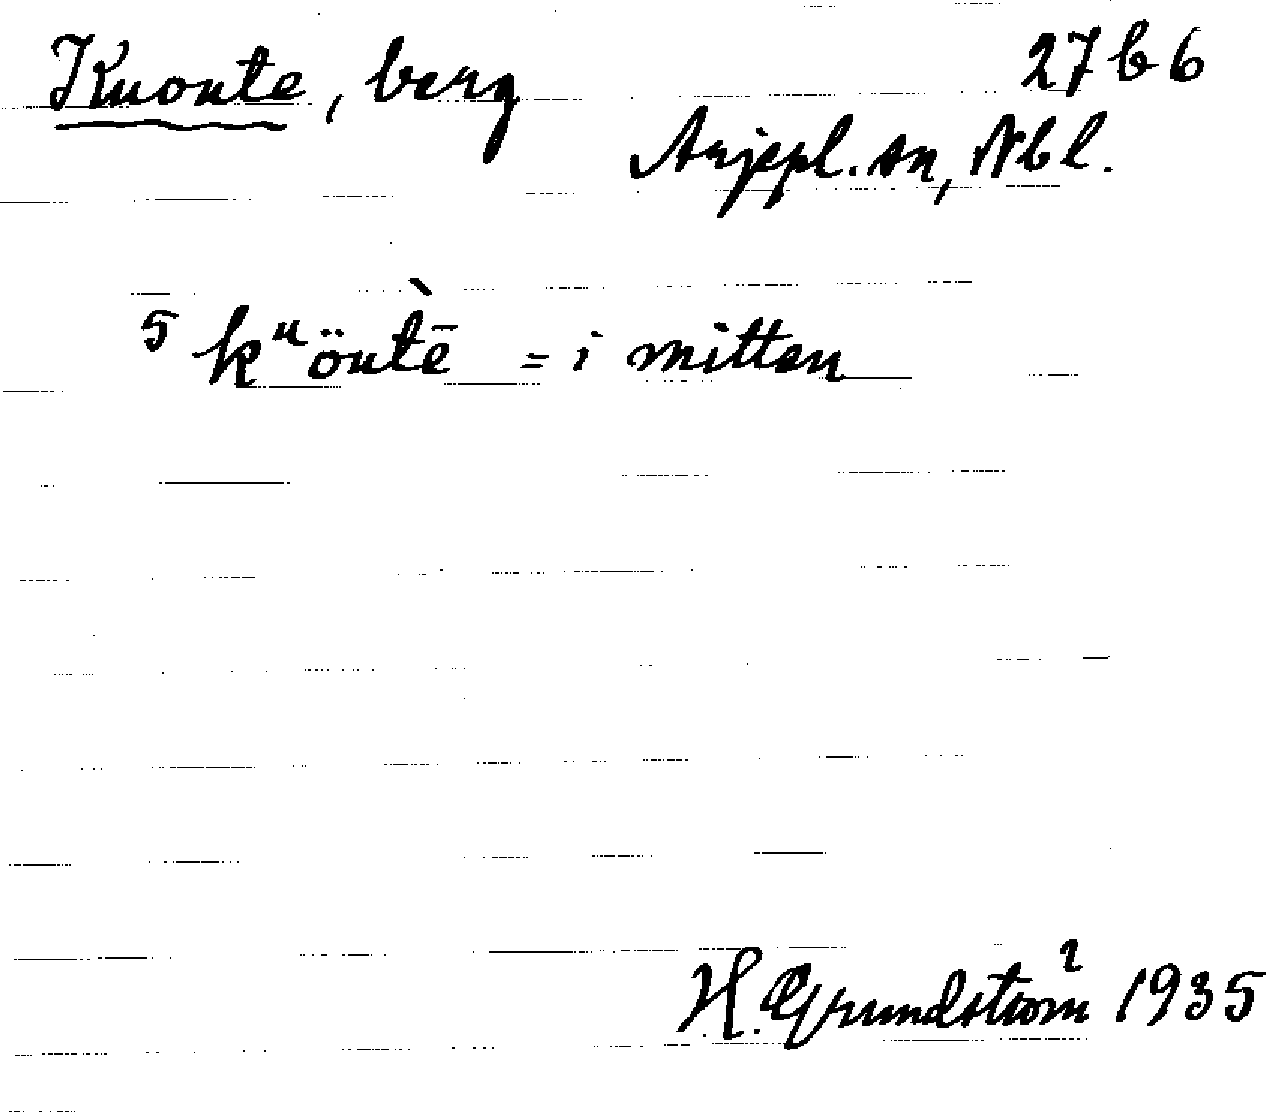 Kuoute, berg 27b6
Arjepl. sn, Nbl.
5 kᵘöutḕ = i mitten
H. Grundström 1935